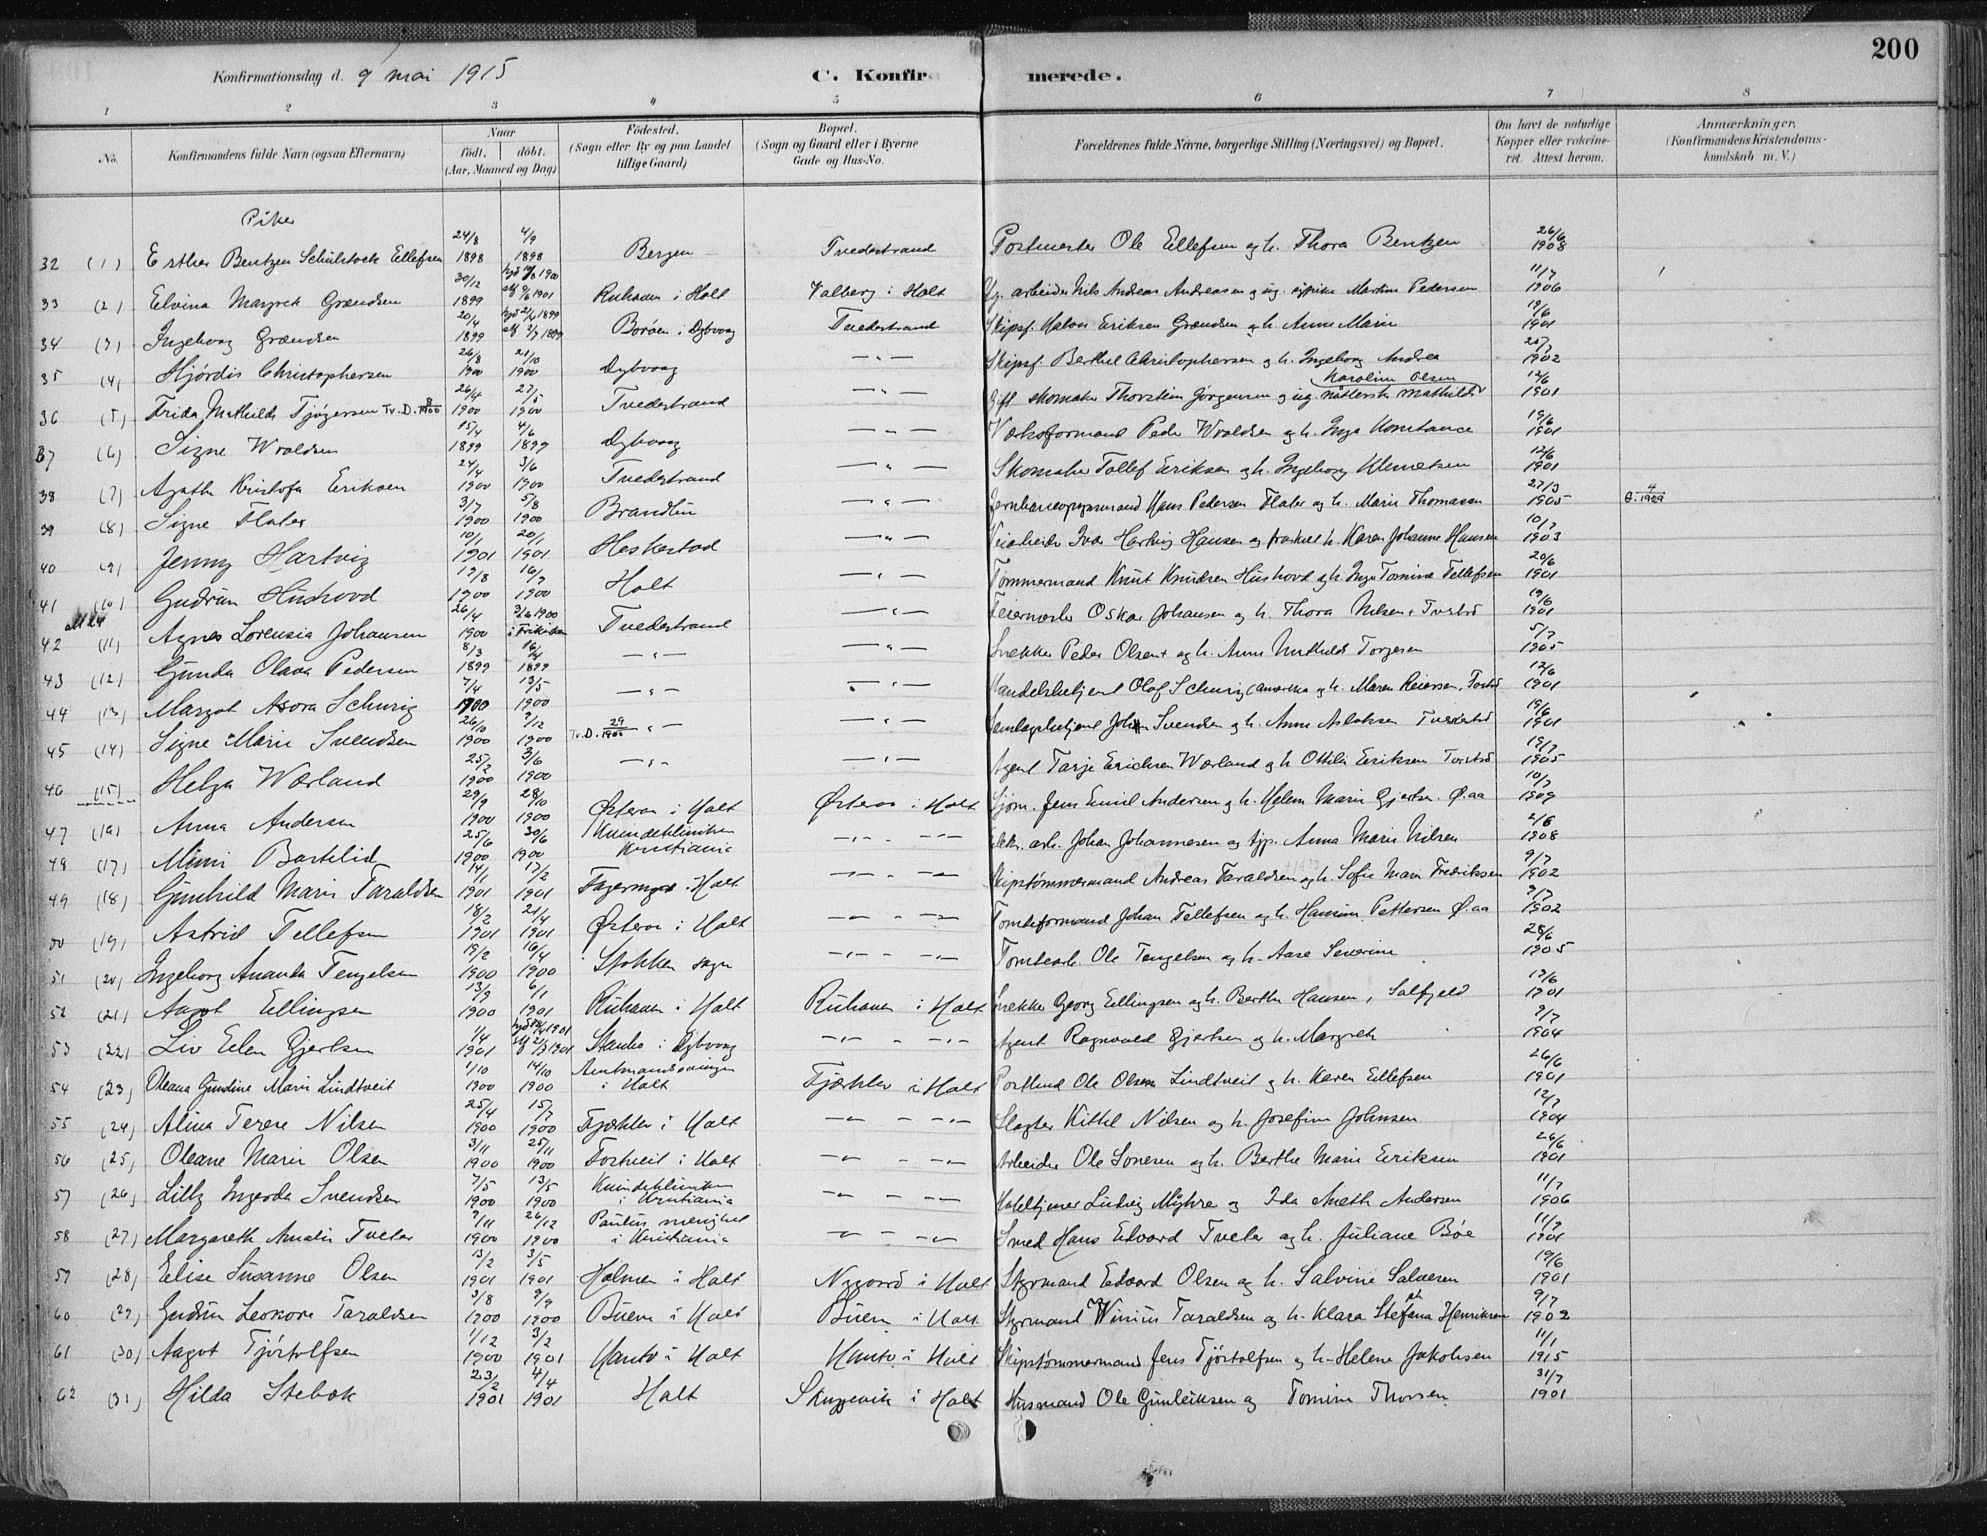 200
Konfirmationsdag d. 9/ mai 1915
C. Konfirmerede.
1 2 3 4 5 6 7 8
No.
Konfirmandens fulde Navn (ogsaa Efternavn)
Naar
født. døbt.
(Aar, Maaned og Dag)
Fødested.
(Sogn eller By og paa Landet
tillige Gaard)
Bopæl.
(Sogn og Gaard eller i Byerne
Gade og Hus-No.
Forældrenes fulde Navne, borgerlige Stilling (Næringsvei) og Bopæl.
Om havt de naturlige
Kopper eller vakcine-
ret. Attest herom.
Anmærkninger.
(Konfirmandens Kristendoms-
kundskab m. V.)
Piker
32 (1) Esther Bentzen Schulstock Ellefsen 24/8 1898 4/9 1898 Bergen Tvedestrand Postmester Ole Ellefsen og h. Thora Bentzen 26/6 1908
33 (2) Elvina Margrete Grændsen 30/12 1899 Ruhaven i Holt Valberg i Holt Ug. arbeider Nils Andreas Andreasen og ug. Martine Pedersen 11/7 1906
34 (3) Ingeborg Grændsen 20/4 1899 Borøen i Dybvaag Tvedestrand Skipsf. Halvor Eriksen Grændsen og h. Anne Marie 19/6 1901
35 (4) Hjørdis Christophersen 26/8 1900 21/10 1900 Dybvaag —"— Skipsf. Berthel Christophersen og h. Ingeborg Andrea 25/7 1902
36 (5) Frida Mathilde Tjøgersen Tv.D. 8/1900 26/4 1900 27/5 1900 Tvedestrand —"— Gift skomaker Thorstein Jørgensen og ug. Mathilde Karoline Olsen 12/6 1901
37 (6) Signe Wroldsen 15/4 1899 4/6 1899 Dybvaag —"— Værksformand Peder Wroldsen og h. Inga Konstance 19/6 1901
38 (7) Agathe Kristofa Eriksen 24/4 1900 3/6 1900 Tvedestrand —"— Skomaker Tollef Eriksen og h. Ingeborg Klemetsen 12/6 1901
39 (8) Signe Flater 3/7 1900 5/8 1900 Brandbu —"— Jernbaneopsynsmand Hans Pedersen Flater og h. Marie Thomassen 27/3 1905
40 (9) Jenny Hartvig 10/1 1901 20/1 1901 Heskestad —"— Veiarbeider Ivar Hartvig Hansen og fraskilt h. Karen Johanne Hansen 10/7 1903
41 (10) Gudrun Hushovd 19/8 1900 16/9 1900 Holt —"— Tømmermand Knut Knudsen Hushovd og h. Inga Tomine Tellefsen 20/6 1901
42 (11) Agnes Lorensia Johansen 26/4 1900 3/6 1900 i Frikirken Tvedestrand —"— Feiermester Oskar Johansen og h. Thora Nilsen, Tvestrd 19/6 1901
43 (12) Gunda Olava Pedersen 8/3 1899 16/4 1899 —"— —"— Snekker Peder Olsen og h. Anne Mathilde Torjesen 5/7 1905
44 (13) Margot Asora Schurig 7/4 1900 13/5 1900 —"— —"— Handelsbetjent Olaf Schurig (Amerika og h. Maren Reiersen, 12/6 1901
45 (14) Signe Marie Svendsen 26/10 1900 9/12 1900 Tv.D. 29/1900 —"— Samlagsbetjent Johan Svendsen og h. Anne Aslaksen Tvedestrd 19/6 1901
46 (15) Helga Wærland 25/2 1900 3/6 1900 —"— —"— Agent Tarje Erichsen Wærland og h. Ottilie Eriksen 19/7 1905
47 (16) Anna Andersen 29/9 1900 28/10 1900 Østeraa i Holt Østeraa i Holt Sjøm. Jens Emil Andersen og h. Helene Marie Gjertsen Ø.aa 10/7 1909
48 (17) Mimi Bartelid 25/6 1900 30/6 1900 Kvindeklinikken Kristiania —"— —"— Johan Johannesen og Anna Marie Nilsen 2/6 1908
49 (18) Gunhild Marie Taraldsen 14/1 1901 17/2 1901 Fagermyr i Holt —"— —"— Skipstømmermand Andreas Taraldsen og h. Sofie Marie Fredriksen 9/7 1902
50 (19) Astrid Tellefsen 18/3 1901 21/4 1901 Østeraa i Holt —"— —"— Tomteformand Johan Tellefsen og h. Hansine Pettersen Ø.aa 9/7 1902
51 (20) Ingeborg Amanda Tengelsen 19/2 1900 16/4 1900 Stokken sogn —"— —"— Tomtearb. Ole Tengelsen og h. Aase Severine 28/6 1905
52 (21) Aagot Ellingsen 13/9 1900 6/1 1901 Ruhaven i Holt Ruhaven i Holt Snekker Georg Ellingsen og h. Berthe Hansen, Solfjeld 19/6 1901
53 (22) Liv Ellen Gjertsen 1/4 1901 Staubo i Dybvaag —"— —"— Agent Ragnvald Gjertsen og h. Margrete 9/7 1904
54 (23) Oleana Gundine Marie Lindtveit 1/10 1900 14/10 1900 Amtmandsvingen i Holt Fjækler i Holt Postbud Ole Olsen Lindtveit og h. Karen Ellefsen 26/6 1901
55 (24) Alina Terese Nilsen 25/4 1900 15/7 1900 Fjækler i Holt —"— —"— Slagter Kittel Nilsen og h. Josefine Johnsen 12/7 1904
56 (25) Oleane Marie Olsen 3/11 1900 25/11 1900 Fostveit i Holt —"— —"— Arbeider Ole Sonesen og h. Berthe Marie Eriksen 26/6 1901
57 (26) Lilly Ingerda Svendsen 7/5 1900 13/5 1900 Kvindeklinikken i Kristiania —"— —"— Hoteltjener Ludvig Myhre og Ida Aneth Andersen 11/7 1906
58 (27) Margareth Amalie Tveter 9/11 1900 26/12 1900 Paulus menighet i Kristiania —"— —"— Smed Hans Edvard Tveter og h. Juliane Bøe 11/7 1901
59 (28) Elise Susanne Olsen 13/2 1901 3/5 1901 Holmen i Holt Nygaard i Holt Styrmand Edvard Olsen og h. Salvine Salvesen 19/6 1901
60 (29) Gudrun Leonore Taraldsen 3/8 1900 9/9 1900 Buene i Holt Buene i Holt Styrmand Taraldsen og h. Klara Stefana Henriksen 9/7 1902
61 (30) Aagot Tjøstolfsen 1/12 1900 3/2 1901 Hanto i Holt Hanto i Holt Skipstømmermand Jens Tjøstolfsen og h. Helene Jakobsen 11/1 1915
62 (31) Hilda Stebok 23/2 1901 4/4 1901 Holt Skuggevik i Holt Husmand Ole Gunleiksen og Tomine Thorsen 31/7 1901